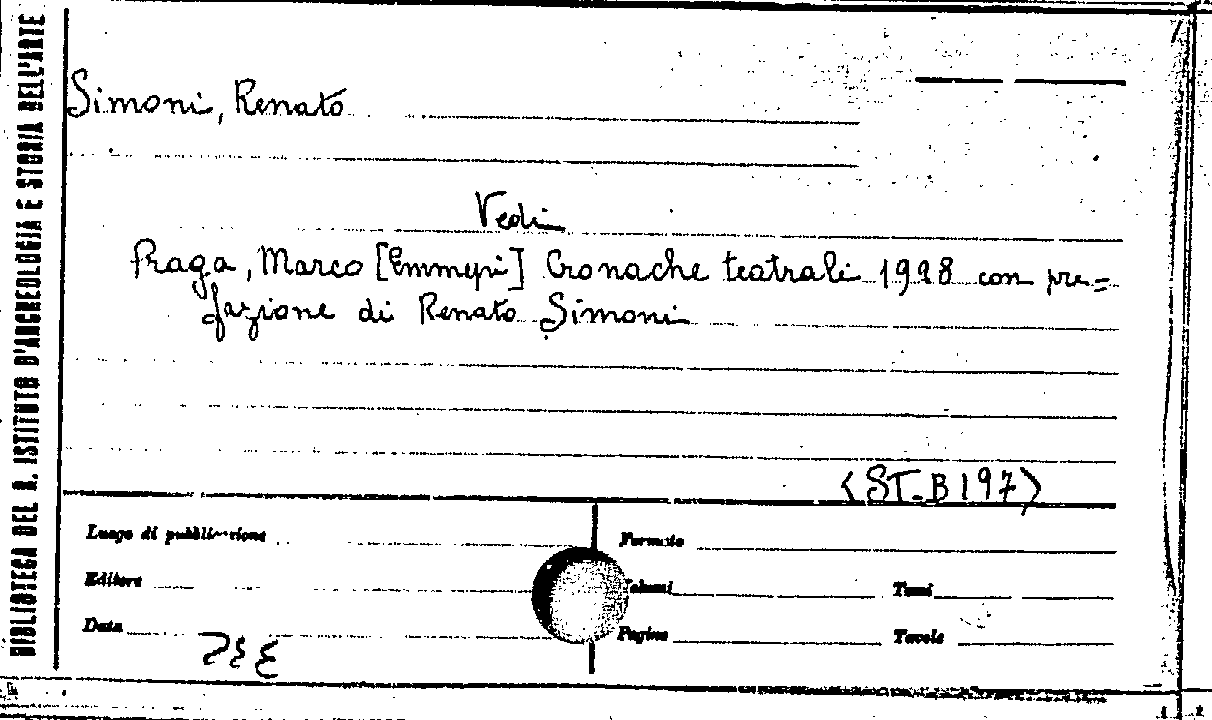 BIBLIOTECA DEL R. ISTITUTO D'ARCHEOLOGIA E STORIA DELL'ARTE
Simoni, Renato
Vedi
Praga, Marco [Emmepi] Cronache teatrali 1928 con pre=
fazione di Renato Simoni
(ST-B197)
Luogo di pubblicazione
Formato
Editore
Volumi
Tomi
Data
Pagine
Tavole